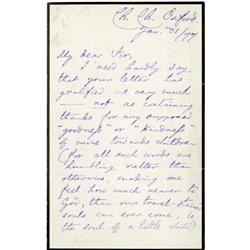 Ch. Ch. Oxford
Jan. 31/77
My dear Sir,
I need hardly say
that your letter has
gratified me very much
— not as containing
thanks for any supposed
"goodness" or "kindness"
of mine towards children
(for all such words are
humbling rather than
otherwise, making one
feel how much nearer to
God, than our travel-stained
souls can ever come, is
the soul of a little child)